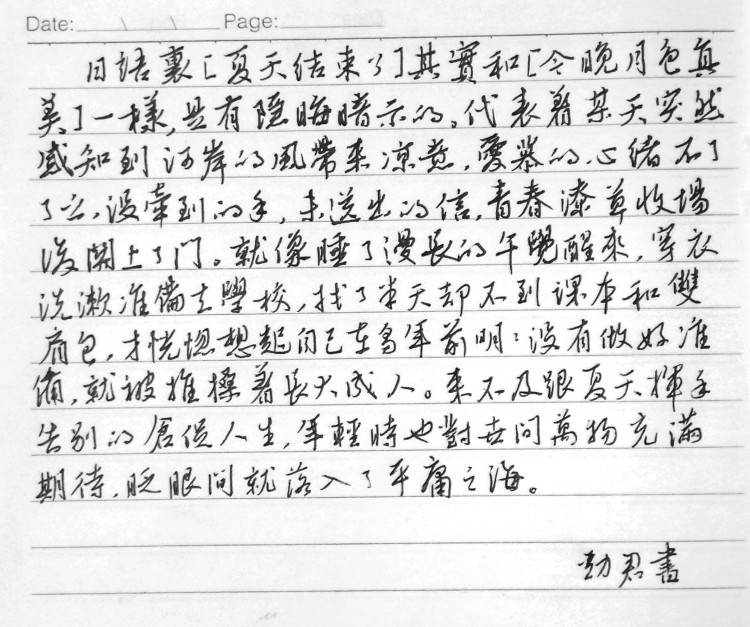 Date: \ \ Page:
日語裏[夏天结束了]其實和[今晚月色真
美]一樣,是有隱晦暗示的。代表着某天突然
感知到河岸的風帶来凉意,愛慕的心緒不了
了之,没牽到的手,未送出的信,青春潦草收場
後関上了门。就像睡了漫長的午覺醒來,穿衣
洗漱准備去學校,找了半天却不到课本和雙
肩包,才恍惚想起自己在多年前明明没有做好准
備,就被推搡着長大成人。来不及跟夏天揮手
告别的倉促人生,年輕時也對世间萬物充滿
期待,眨眼间就落入了平庸之海。
劲君書